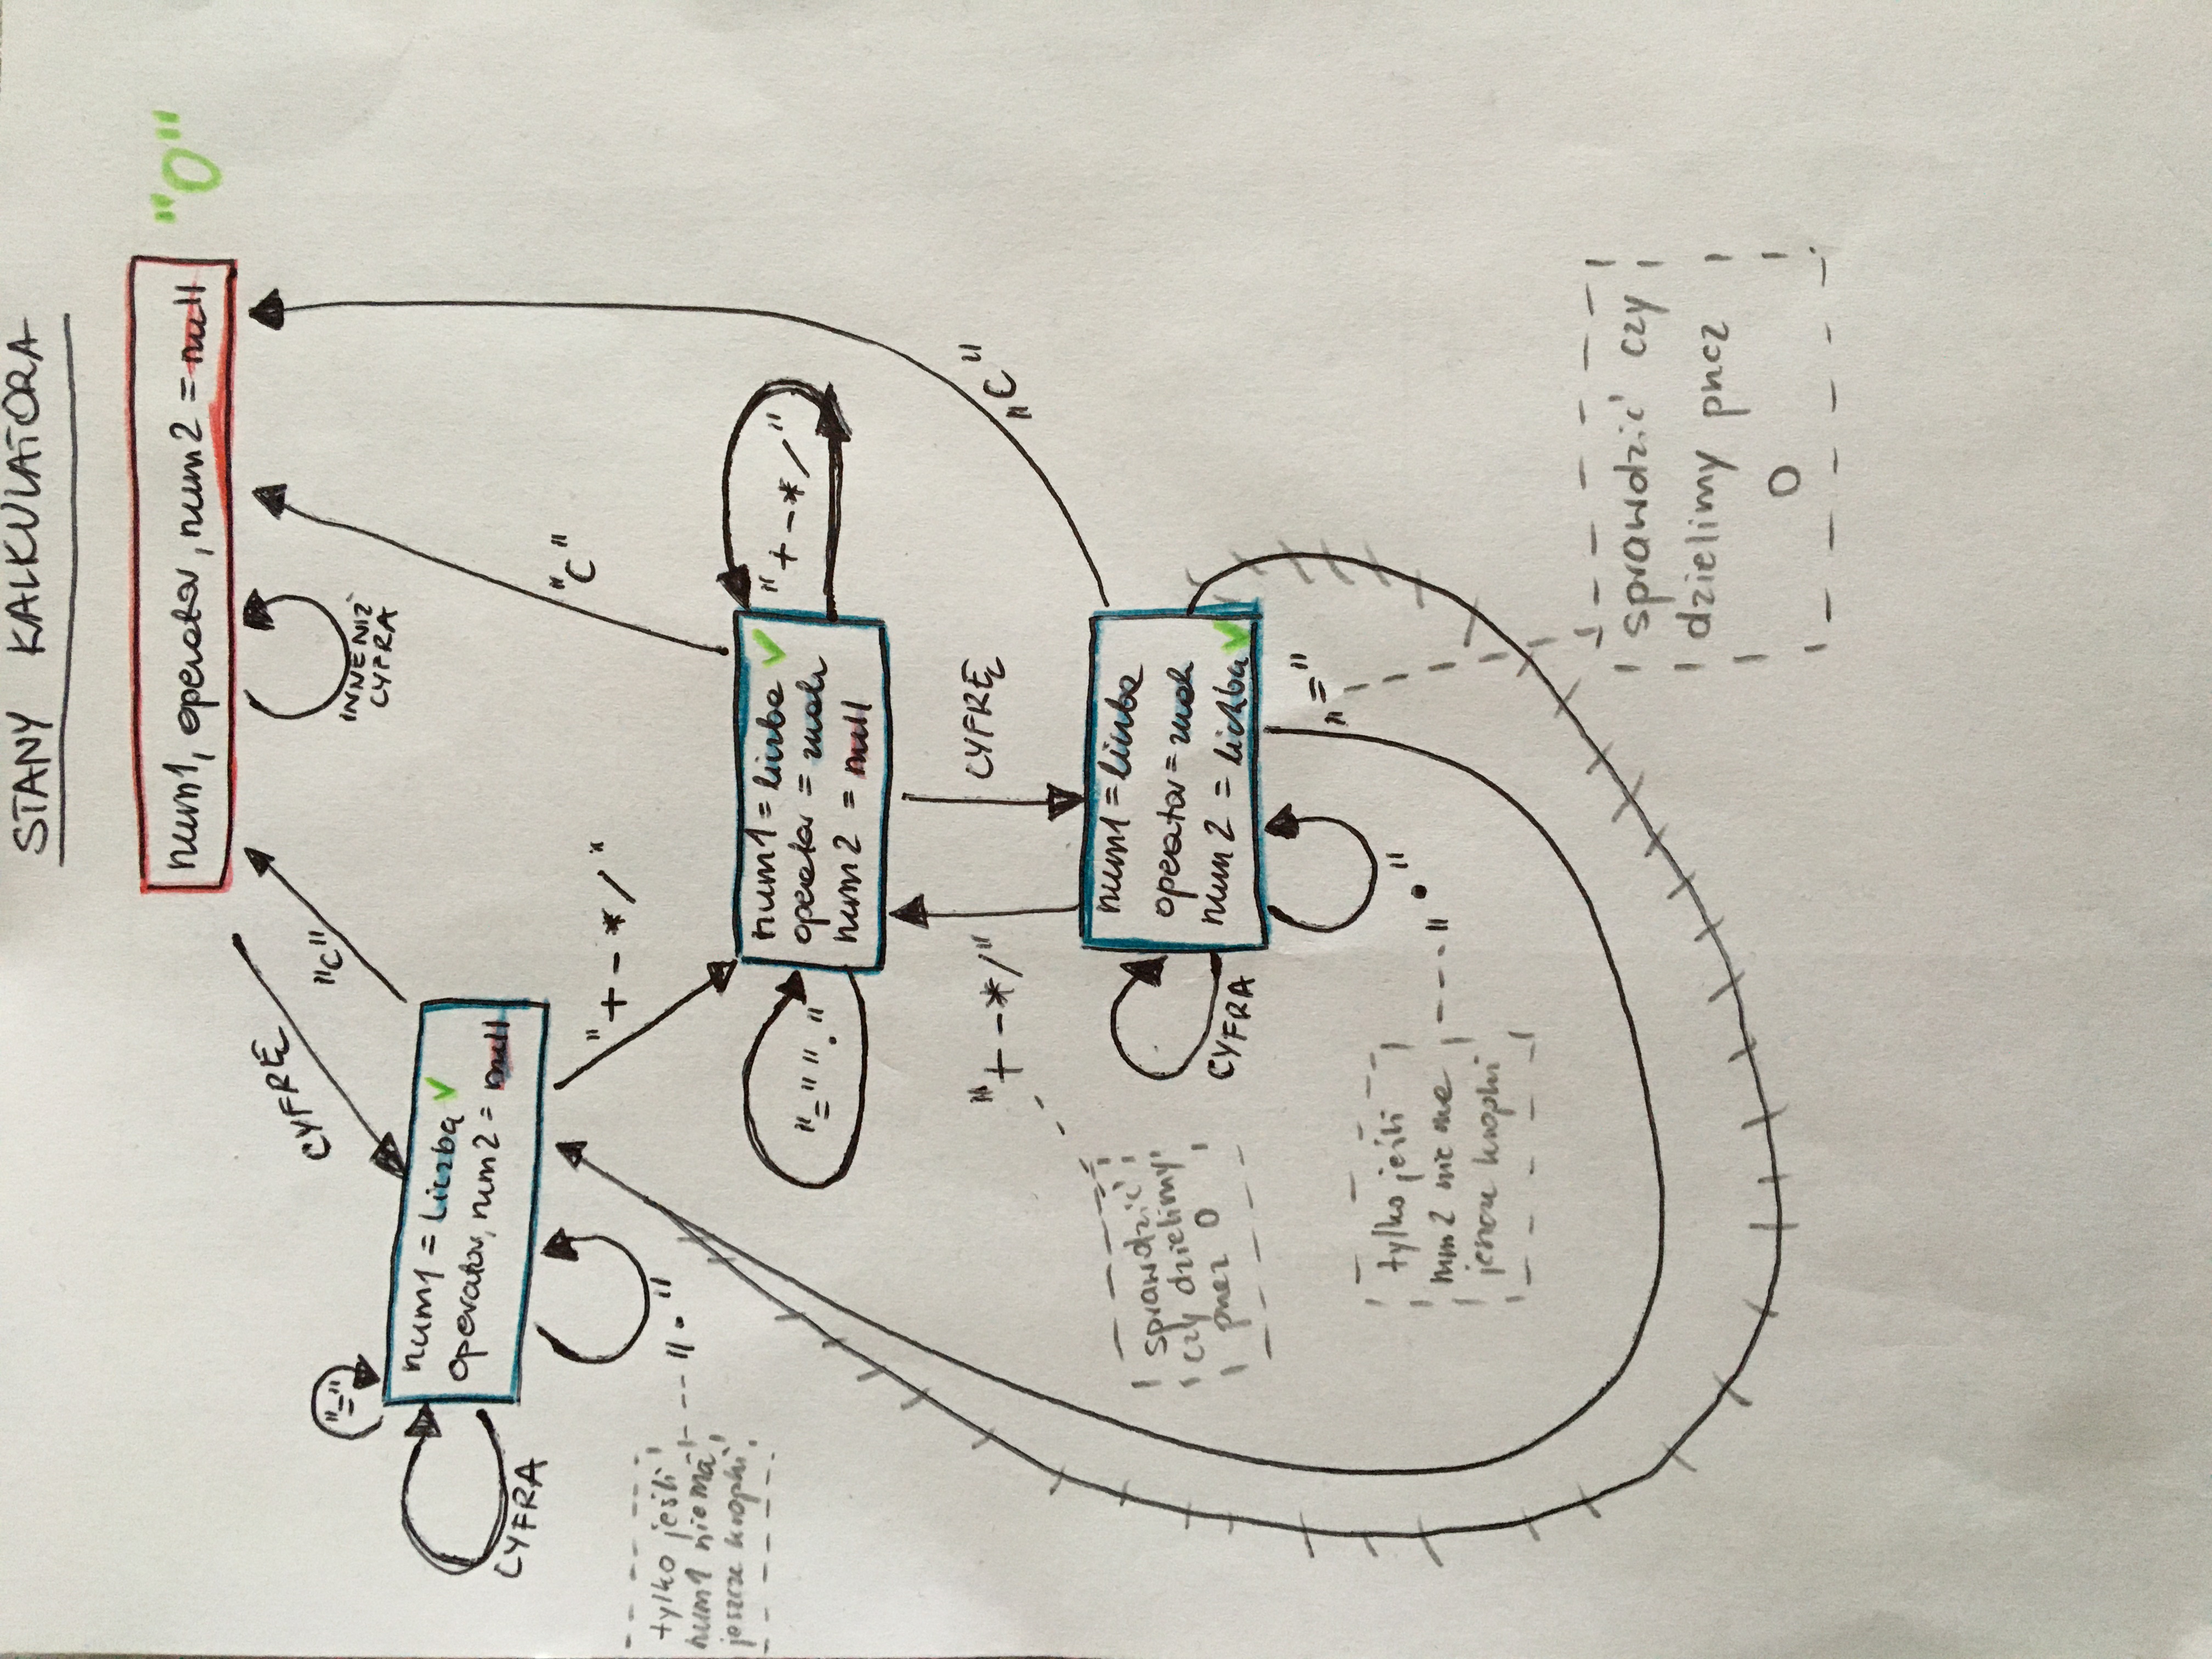 STANY KALKULATORA
num1, operator, num2 = null
"0"
CYFRĘ
"C"
INNE NIŻ
CYFRA
"="
num1 = liczba ✓
operator, num2 = null
CYFRA
"."
tylko jeśli
num1 nie ma
jeszcze kropki
"+ - * /"
"C"
num1 = liczba ✓
operator = znak
num2 = null
"=" "."
"+ - * /"
"+ - * /"
CYFRĘ
„C"
sprawdzić
czy dzielimy
przez 0
num1 = liczba
operator = znak
num2 = liczba ✓
CYFRA
„="
tylko jeśli
num2 nie ma
jeszcze kropki
"."
sprawdzić czy
dzielimy przez
0